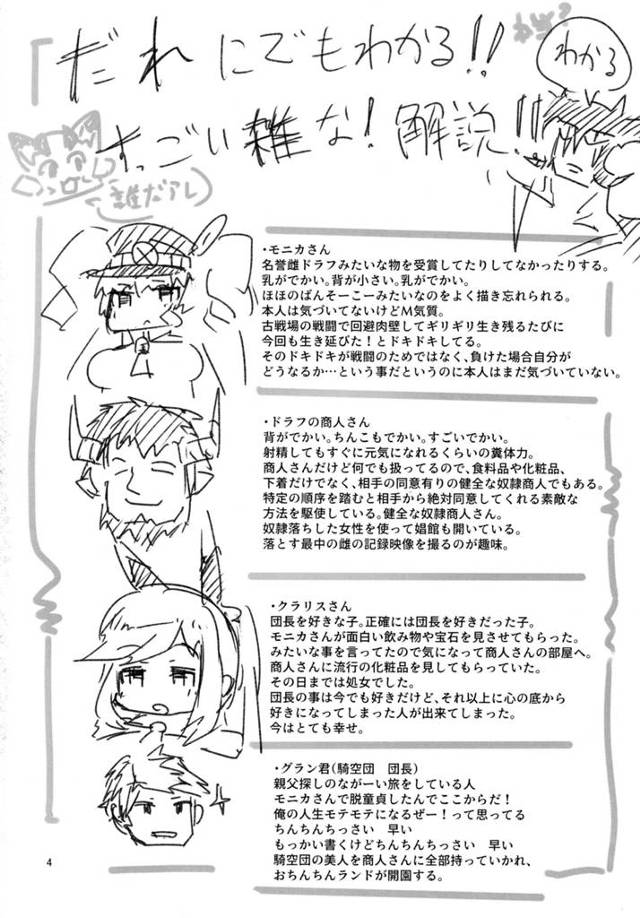 「だれにでもわかる!!
本当?
わかる
すっごい雑な!解説!!
誰だアレ
・モニカさん
名誉雌ドラフみたいな物を受賞してたりしてなかったりする。
乳がでかい。背が小さい。乳がでかい。
ほほのばんそーこーみたいなのをよく描き忘れられる。
本人は気づいてないけどM気質。
古戦場の戦闘で回避肉壁してギリギリ生き残るたびに
今回も生き延びた!とドキドキしてる。
そのドキドキが戦闘のためではなく、負けた場合自分が
どうなるか…という事だというのに本人はまだ気づいていない。
・ドラフの商人さん
背がでかい。ちんこもでかい。すごいでかい。
射精してもすぐに元気になれるくらいの糞体力。
商人さんだけど何でも扱ってるので、食料品や化粧品、
下着だけでなく、相手の同意有りの健全な奴隷商人でもある。
特定の順序を踏むと相手から絶対同意してくれる素敵な
方法を駆使している。健全な奴隷商人さん。
奴隷落ちした女性を使って娼館も開いている。
落とす最中の雌の記録映像を撮るのが趣味。
・クラリスさん
団長を好きな子。正確には団長を好きだった子。
モニカさんが面白い飲み物や宝石を見させてもらった。
みたいな事を言ってたので気になって商人さんの部屋へ。
商人さんに流行の化粧品を見してもらっていた。
その日までは処女でした。
団長の事は今でも好きだけど、それ以上に心の底から
好きになってしまった人が出来てしまった。
今はとても幸せ。
・グラン君(騎空団 団長)
親父探しのなが~い旅をしている人
モニカさんで脱童貞したんでここからだ!
俺の人生モテモテになるぜー!って思ってる
ちんちんちっさい 早い
もっかい書くけどちんちんちっさい 早い
騎空団の美人を商人さんに全部持っていかれ、
おちんちんランドが開園する。
4